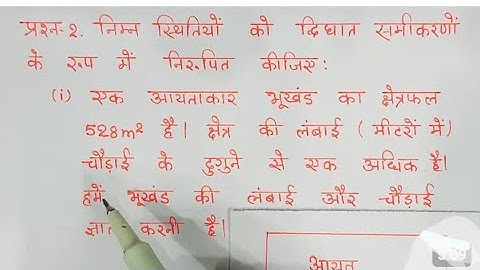 प्रश्न-२. निम्न स्थितियों को द्विघात समीकरणों
के रूप में निरूपित कीजिए:
(i) एक आयताकार भूखंड का क्षेत्रफल
528m² है। क्षेत्र की लंबाई (मीटरों में)
चौड़ाई के दुगुने से एक अधिक है।
हमें भूखंड की लंबाई और चौड़ाई
ज्ञात करनी है।
आयत
5:09